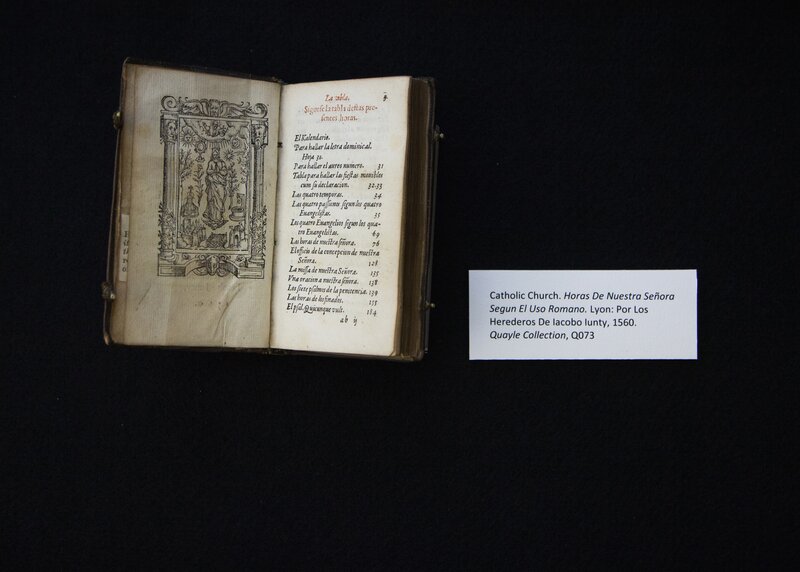 La tabla.
Siguese la tabla destas pre-
sentes horas.
El Kalendario.
Para hallar la letra dominical.
Hoja 32.
Para hallar el aureo numero. 31
Tabla para hallar las fiestas mouibles
cum su declaracion. 32.33
Las quatro temporas. 34
Las quatro passiones segun los quatro
Euangelistas. 35
Los quatro Euangelios segun los qua-
tro Euangelistas. 69
Las horas de nuestra señora. 76
El officio de la concepcion de nuestra
Señora. 128
La missa de nuestra Señora. 135
Vna oracion a nuestra señora. 138
Los siete psalmos de la penitencia. 139
Las horas de los finados. 155
El psal. Quicunque vult. 184
ab ij
Catholic Church. Horas De Nuestra Señora
Segun El Uso Romano. Lyon: Por Los
Herederos De Iacobo Iunty, 1560.
Quayle Collection, Q073